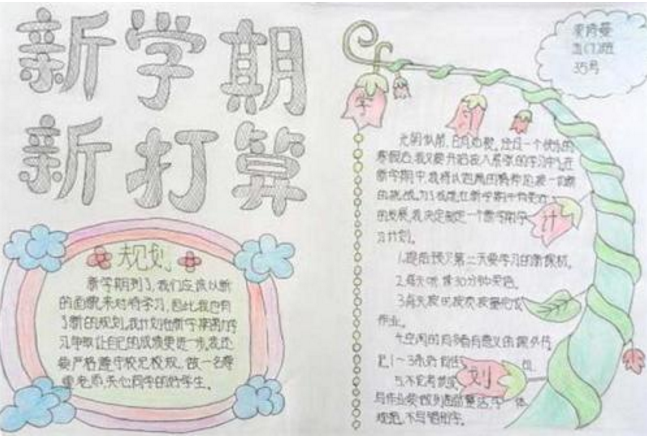 新学期
新打算
规划
新学期到了,我们应该以新
的面貌来对待学习,因此我也有
了新的规划。我计划在新学期
习中让自己的成绩更进一步,我还
要严格遵守校纪校规,做一名尊
重老师,关心同学的好学生。
35号
学
习
计
划
光阴似箭,日月如梭,
寒假后,我又要开始投入紧张的学习中。在
新学期中,我将以饱满的精神迎接一切新
的挑战。为了我能在新学期中有更好
的发展,我决定制定一个新学期学
习计划。
1.提前预习第二天要学习的新教材。
2.每天听读30分钟英语。
3.每天按时按质按量完成
作业。
4.空闲的时多看有意义的课外书
记1~3条好句
5.
与作业要做到画面整洁,字体
规范,不写错别字。